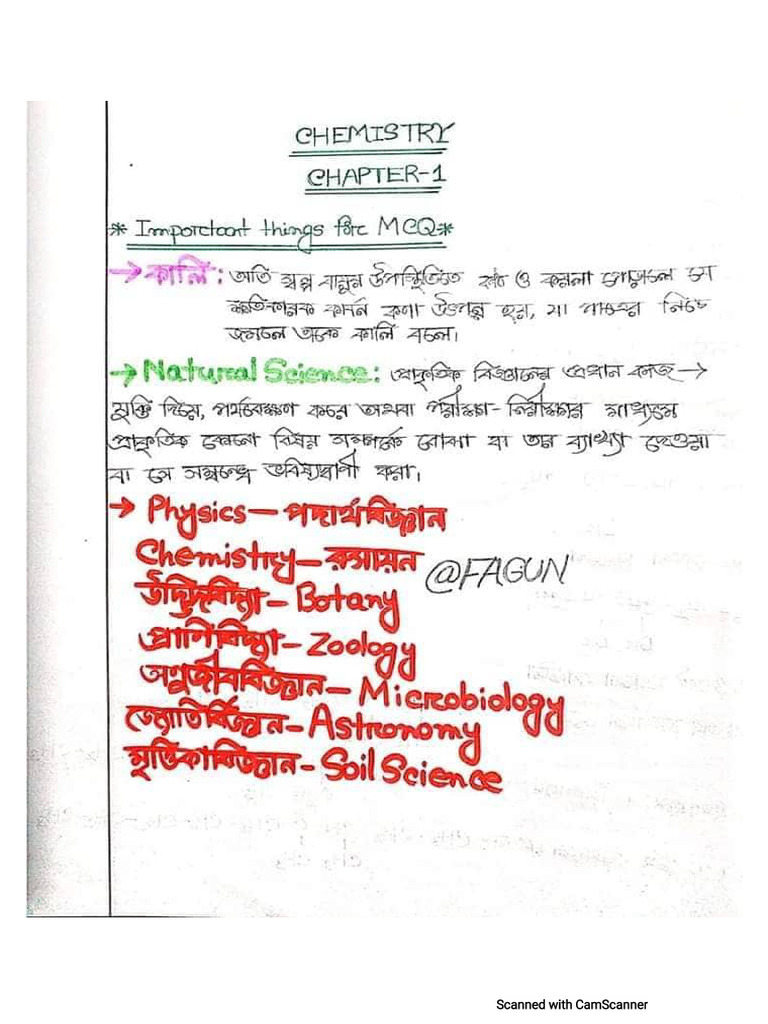 CHEMISTRY
CHAPTER-1
* Important things for MCQ *
→ কালি: অতি স্বল্প বায়ুর উপস্থিতিতে কাঠ ও কয়লা পোড়ালে যে
ক্ষতিকারক কার্বন কণা উৎপন্ন হয়, যা পাত্রের নিচে
জমলে তাকে কালি বলে।
→ Natural Science: প্রাকৃতিক বিজ্ঞানের প্রধান কাজ →
যুক্তি দিয়ে, পর্যবেক্ষণ করে অথবা পরীক্ষা-নিরীক্ষার মাধ্যমে
প্রাকৃতিক কোনো বিষয় সম্পর্কে বোঝা বা তার ব্যাখ্যা দেওয়া
বা সে সম্বন্ধে ভবিষ্যদ্বাণী করা।
→ Physics — পদার্থবিজ্ঞান
Chemistry — রসায়ন
@FAGUN
উদ্ভিদবিদ্যা - Botany
প্রাণিবিদ্যা - Zoology
অণুজীববিজ্ঞান - Microbiology
জ্যোতির্বিজ্ঞান - Astronomy
মৃত্তিকাবিজ্ঞান - Soil Science
Scanned with CamScanner